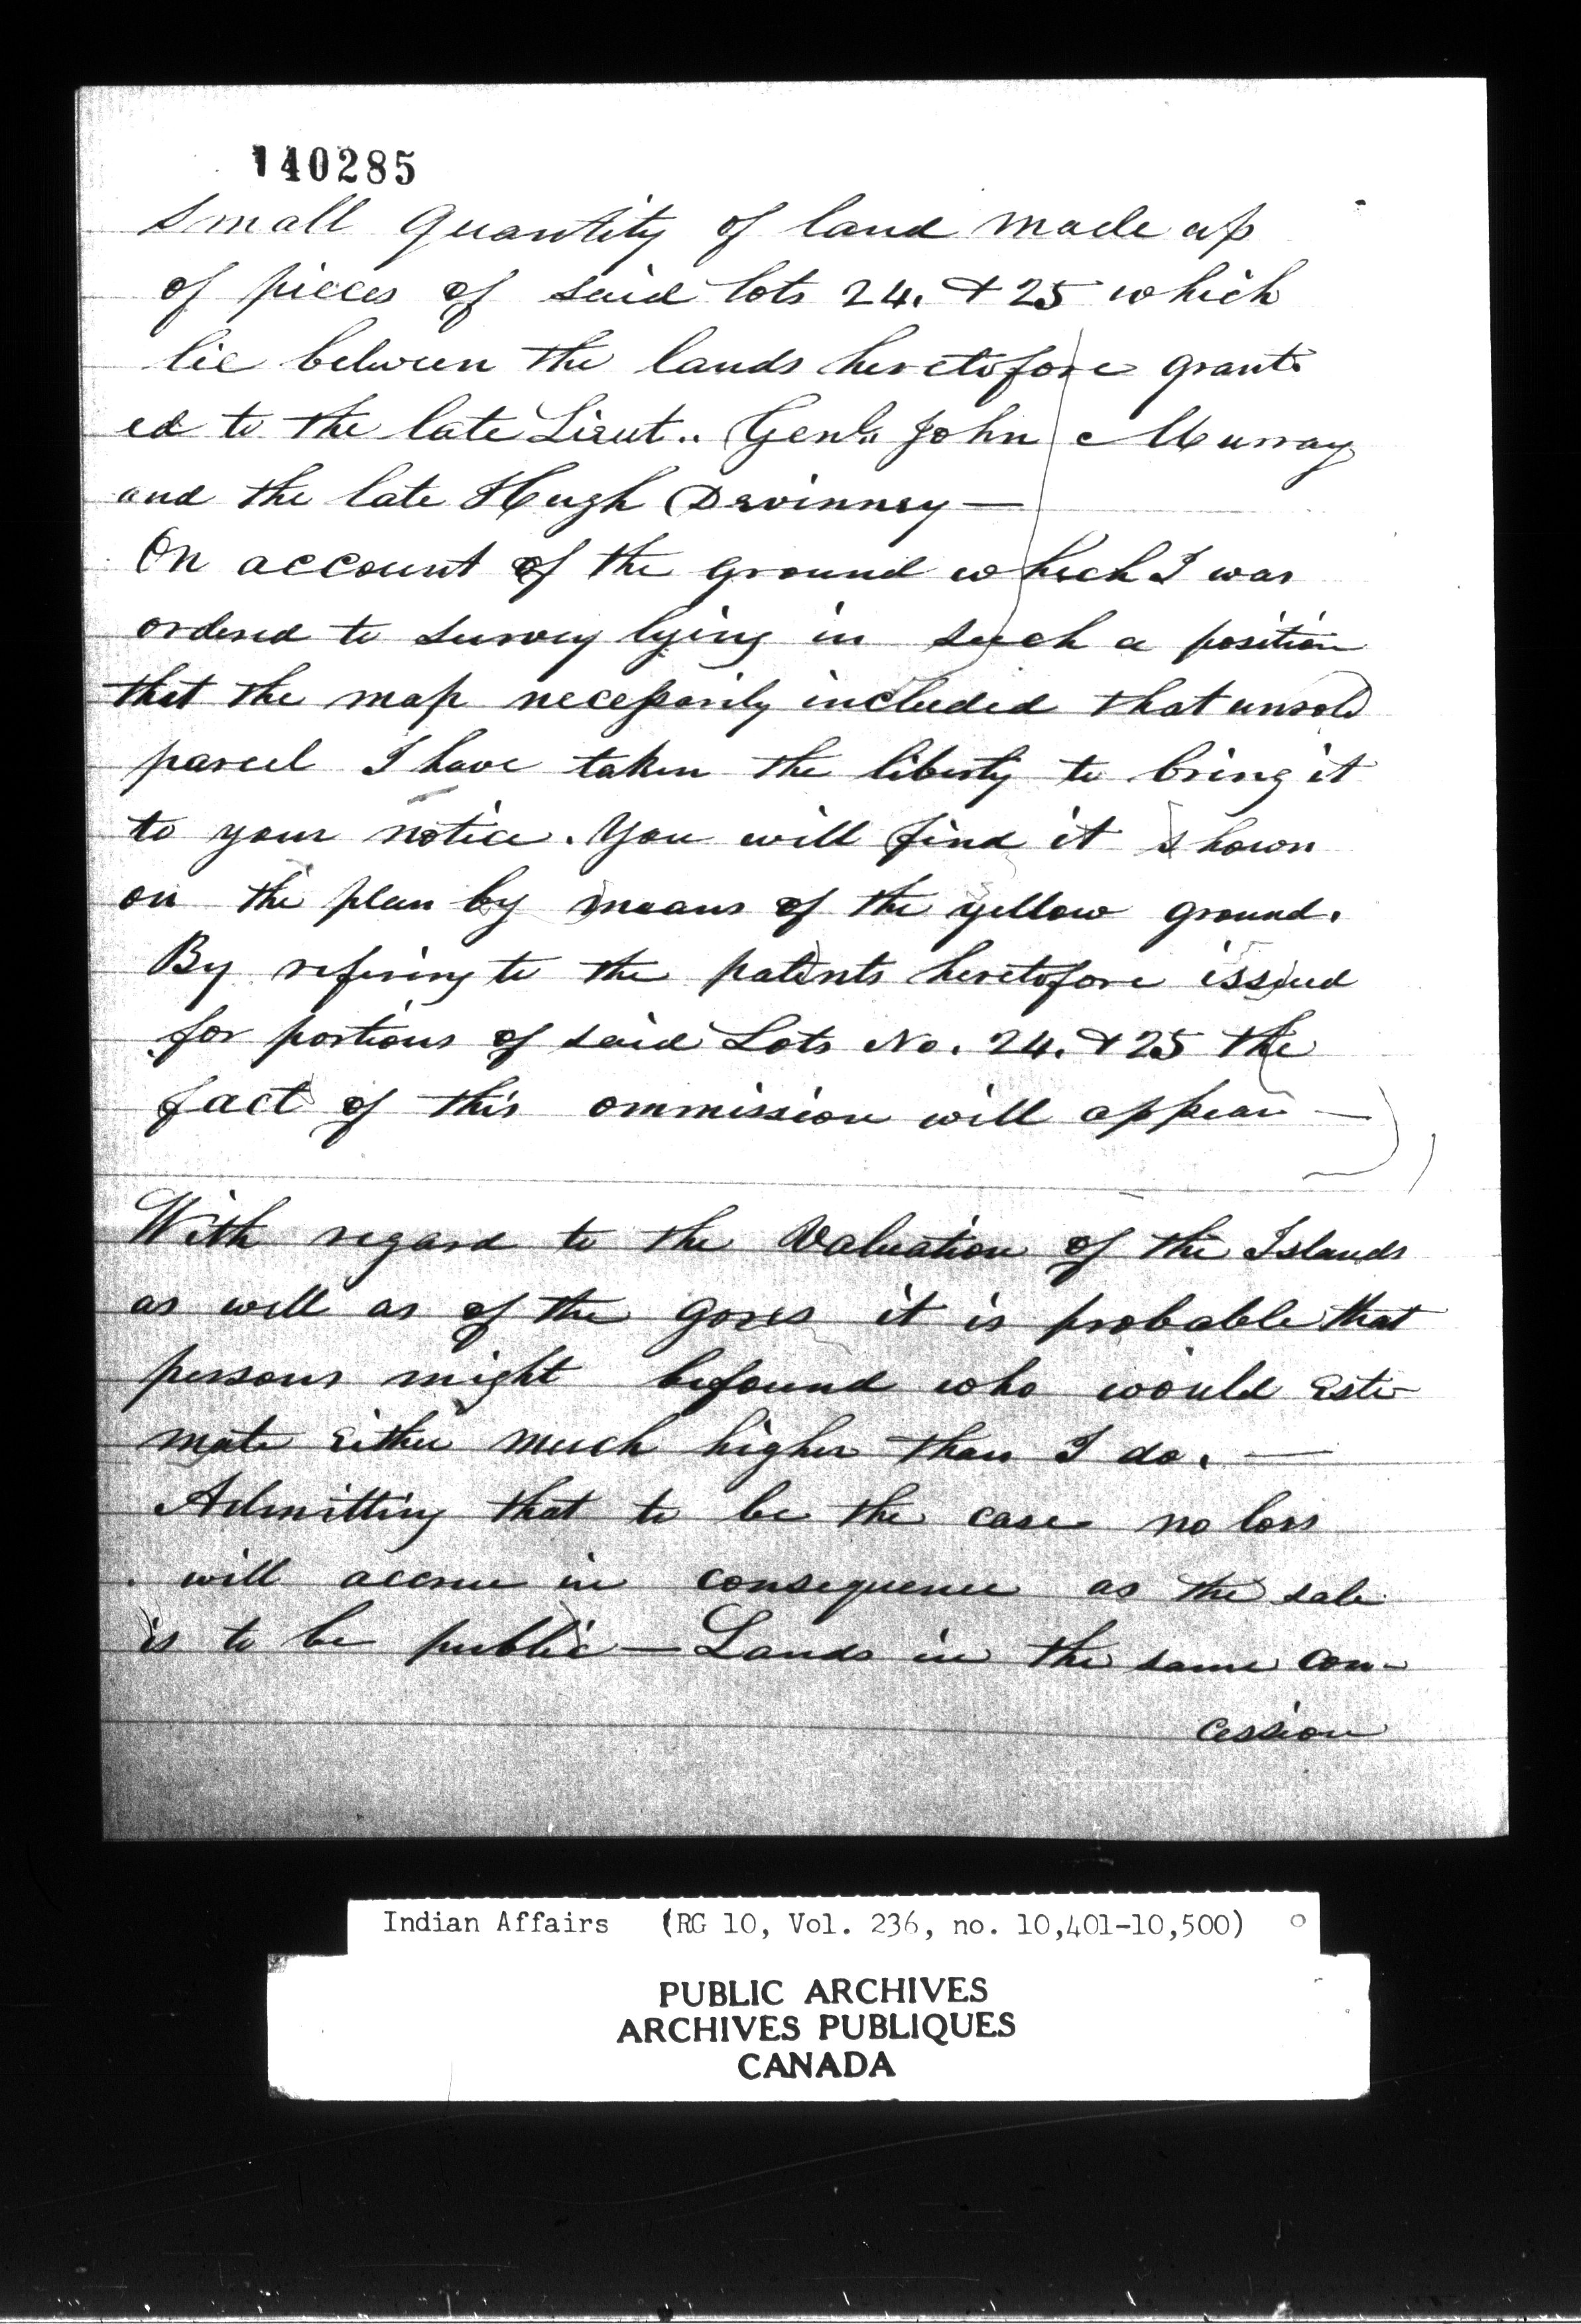 140285
small quantity of land made up
of pieces of said lots 24. & 25 which
lie between the lands heretofore grant-
ed to the late Lieut.. Genl.. John Murray
and the late Hugh Devinney —
On account of the ground which I was
ordered to survey lying in such a position
that the map necessarily included that unsold
parcel I have taken the liberty to bring it
to your notice. You will find it shown
on the plan by means of the yellow ground.
By refering to the patents heretofore issued
for portions of said Lots No. 24. & 25 the
fact of this ommission will appear —
With regard to the Valuation of the Islands
as well as of the gores it is probable that
persons might be found who would esti-
mate either much higher than I do. —
Admitting that to be the case no loss
will accrue in consequence as the sale
is to be public — Lands in the same con-
cession
Indian Affairs (RG 10, Vol. 236, no. 10,401-10,500)
PUBLIC ARCHIVES
ARCHIVES PUBLIQUES
CANADA